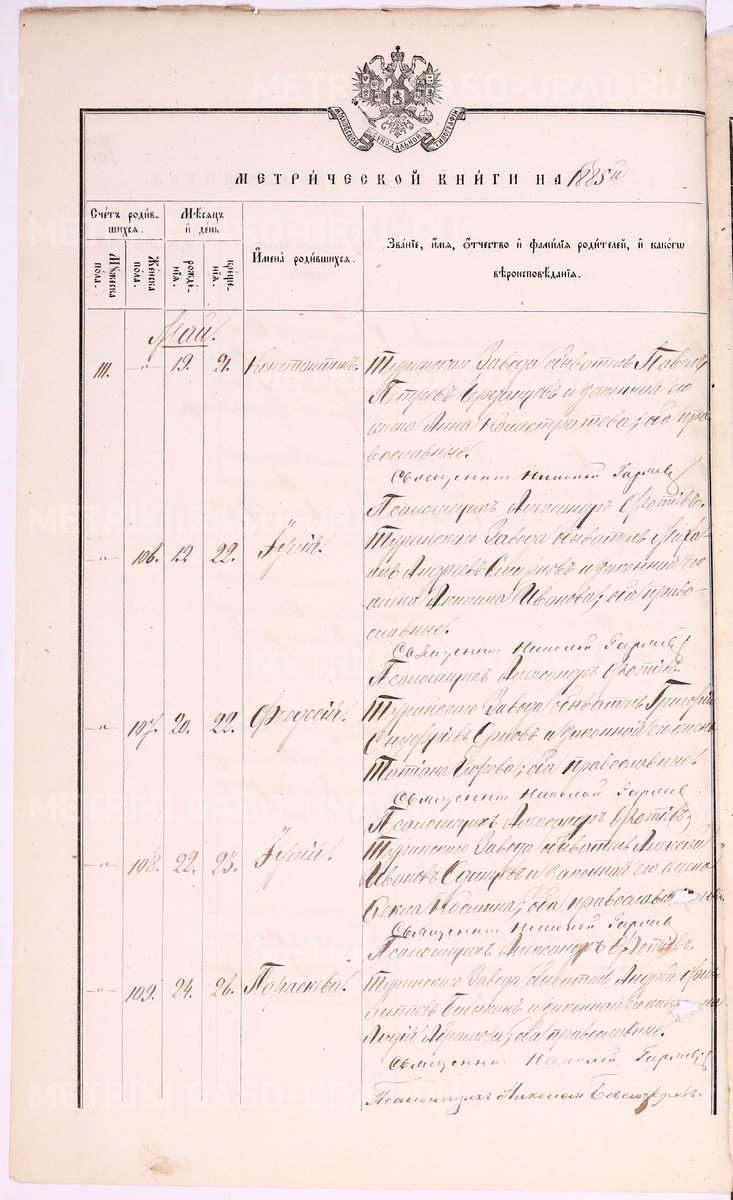 МОСКОВСКОЙ СѴНОДАЛЬНОЙ ТИПОГРАФІИ
МЕТРИ́ЧЕСКОЙ КНИ́ГИ НА 1885 й
Сче́тъ роди́вшихсѧ.
Мѣ́сѧцъ и҆ де́нь
И҆мена̀ роди́вшихсѧ.
Зва́нїе, и҆́мѧ, ѻ҆́тчество и҆ фами́лїѧ роди́телей, и҆ како́гѡ вѣроисповѣ́данїѧ.
Мꙋ́жеска по́ла.
Же́нска по́ла.
рожде́нїѧ.
креще́нїѧ.
Май.
111. -"- 19. 21. Константинъ. Туринскаго Завода обыватель Павелъ
Петровъ и законная его
жена Анна Калистратова; оба пра
вославные.
Священникъ Николай Гаряевъ
Псаломщикъ Александръ Фотіевъ.
-"- 106. 12. 22. Гулія. Туринскаго Завода обыватель Миха-
илъ Андреевъ Смирновъ и законная его
жена Иванова; оба право-
славные.
Священникъ Николай Гаряевъ
Псаломщикъ Александръ Фотіевъ.
-"- 107. 20. 22. Феодосія. Туринскаго Завода обыватель Григорій
Онуфріевъ и законная его жена
Татіана Егорова; оба православные.
Священникъ Николай Гаряевъ
Псаломщикъ Александръ Фотіевъ.
-"- 108. 22. 23. Гулія. Туринскаго Завода обыватель Алексей
Ивановъ и законная его жена
Фекла Козмина; оба православные.
Священникъ Николай Гаряевъ
Псаломщикъ Александръ Фотіевъ.
-"- 109. 24. 26. Параскева. Туринскаго Завода обыватель Андрей
и законная его жена
Лидія Абрамова; оба православные.
Священникъ Николай Гаряевъ
Псаломщикъ
METRIKI.GASO-URAL.RU